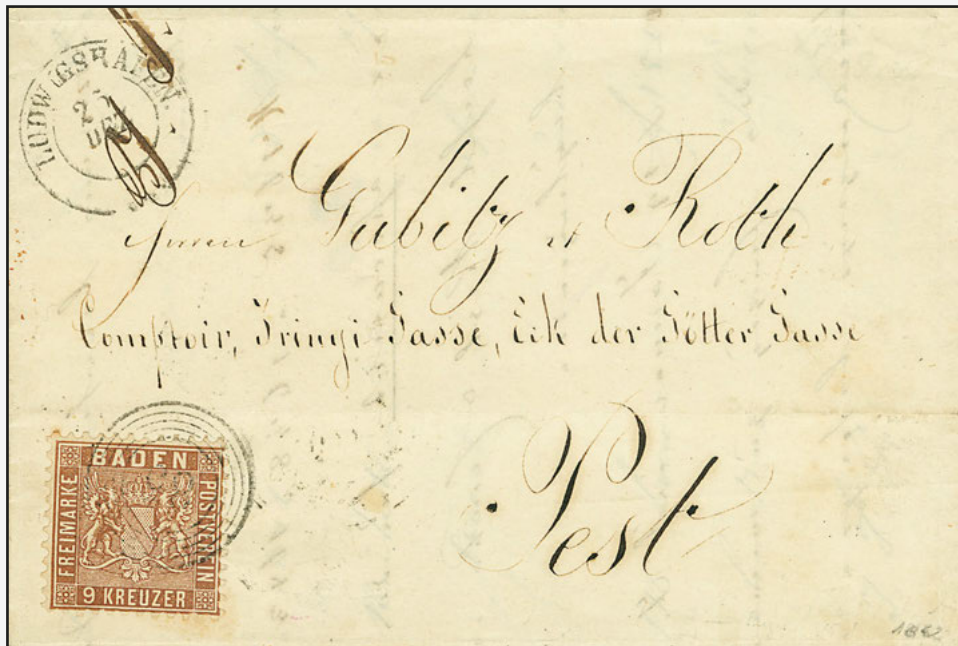 LUDWIGSHAFEN.
25
DEZ
Herren Gabitz & Roth
Comptoir, Iringi Gasse, Eck der Götter Gasse
Pest
BADEN
FREIMARKE
POSTVEREIN
9 KREUZER
1862